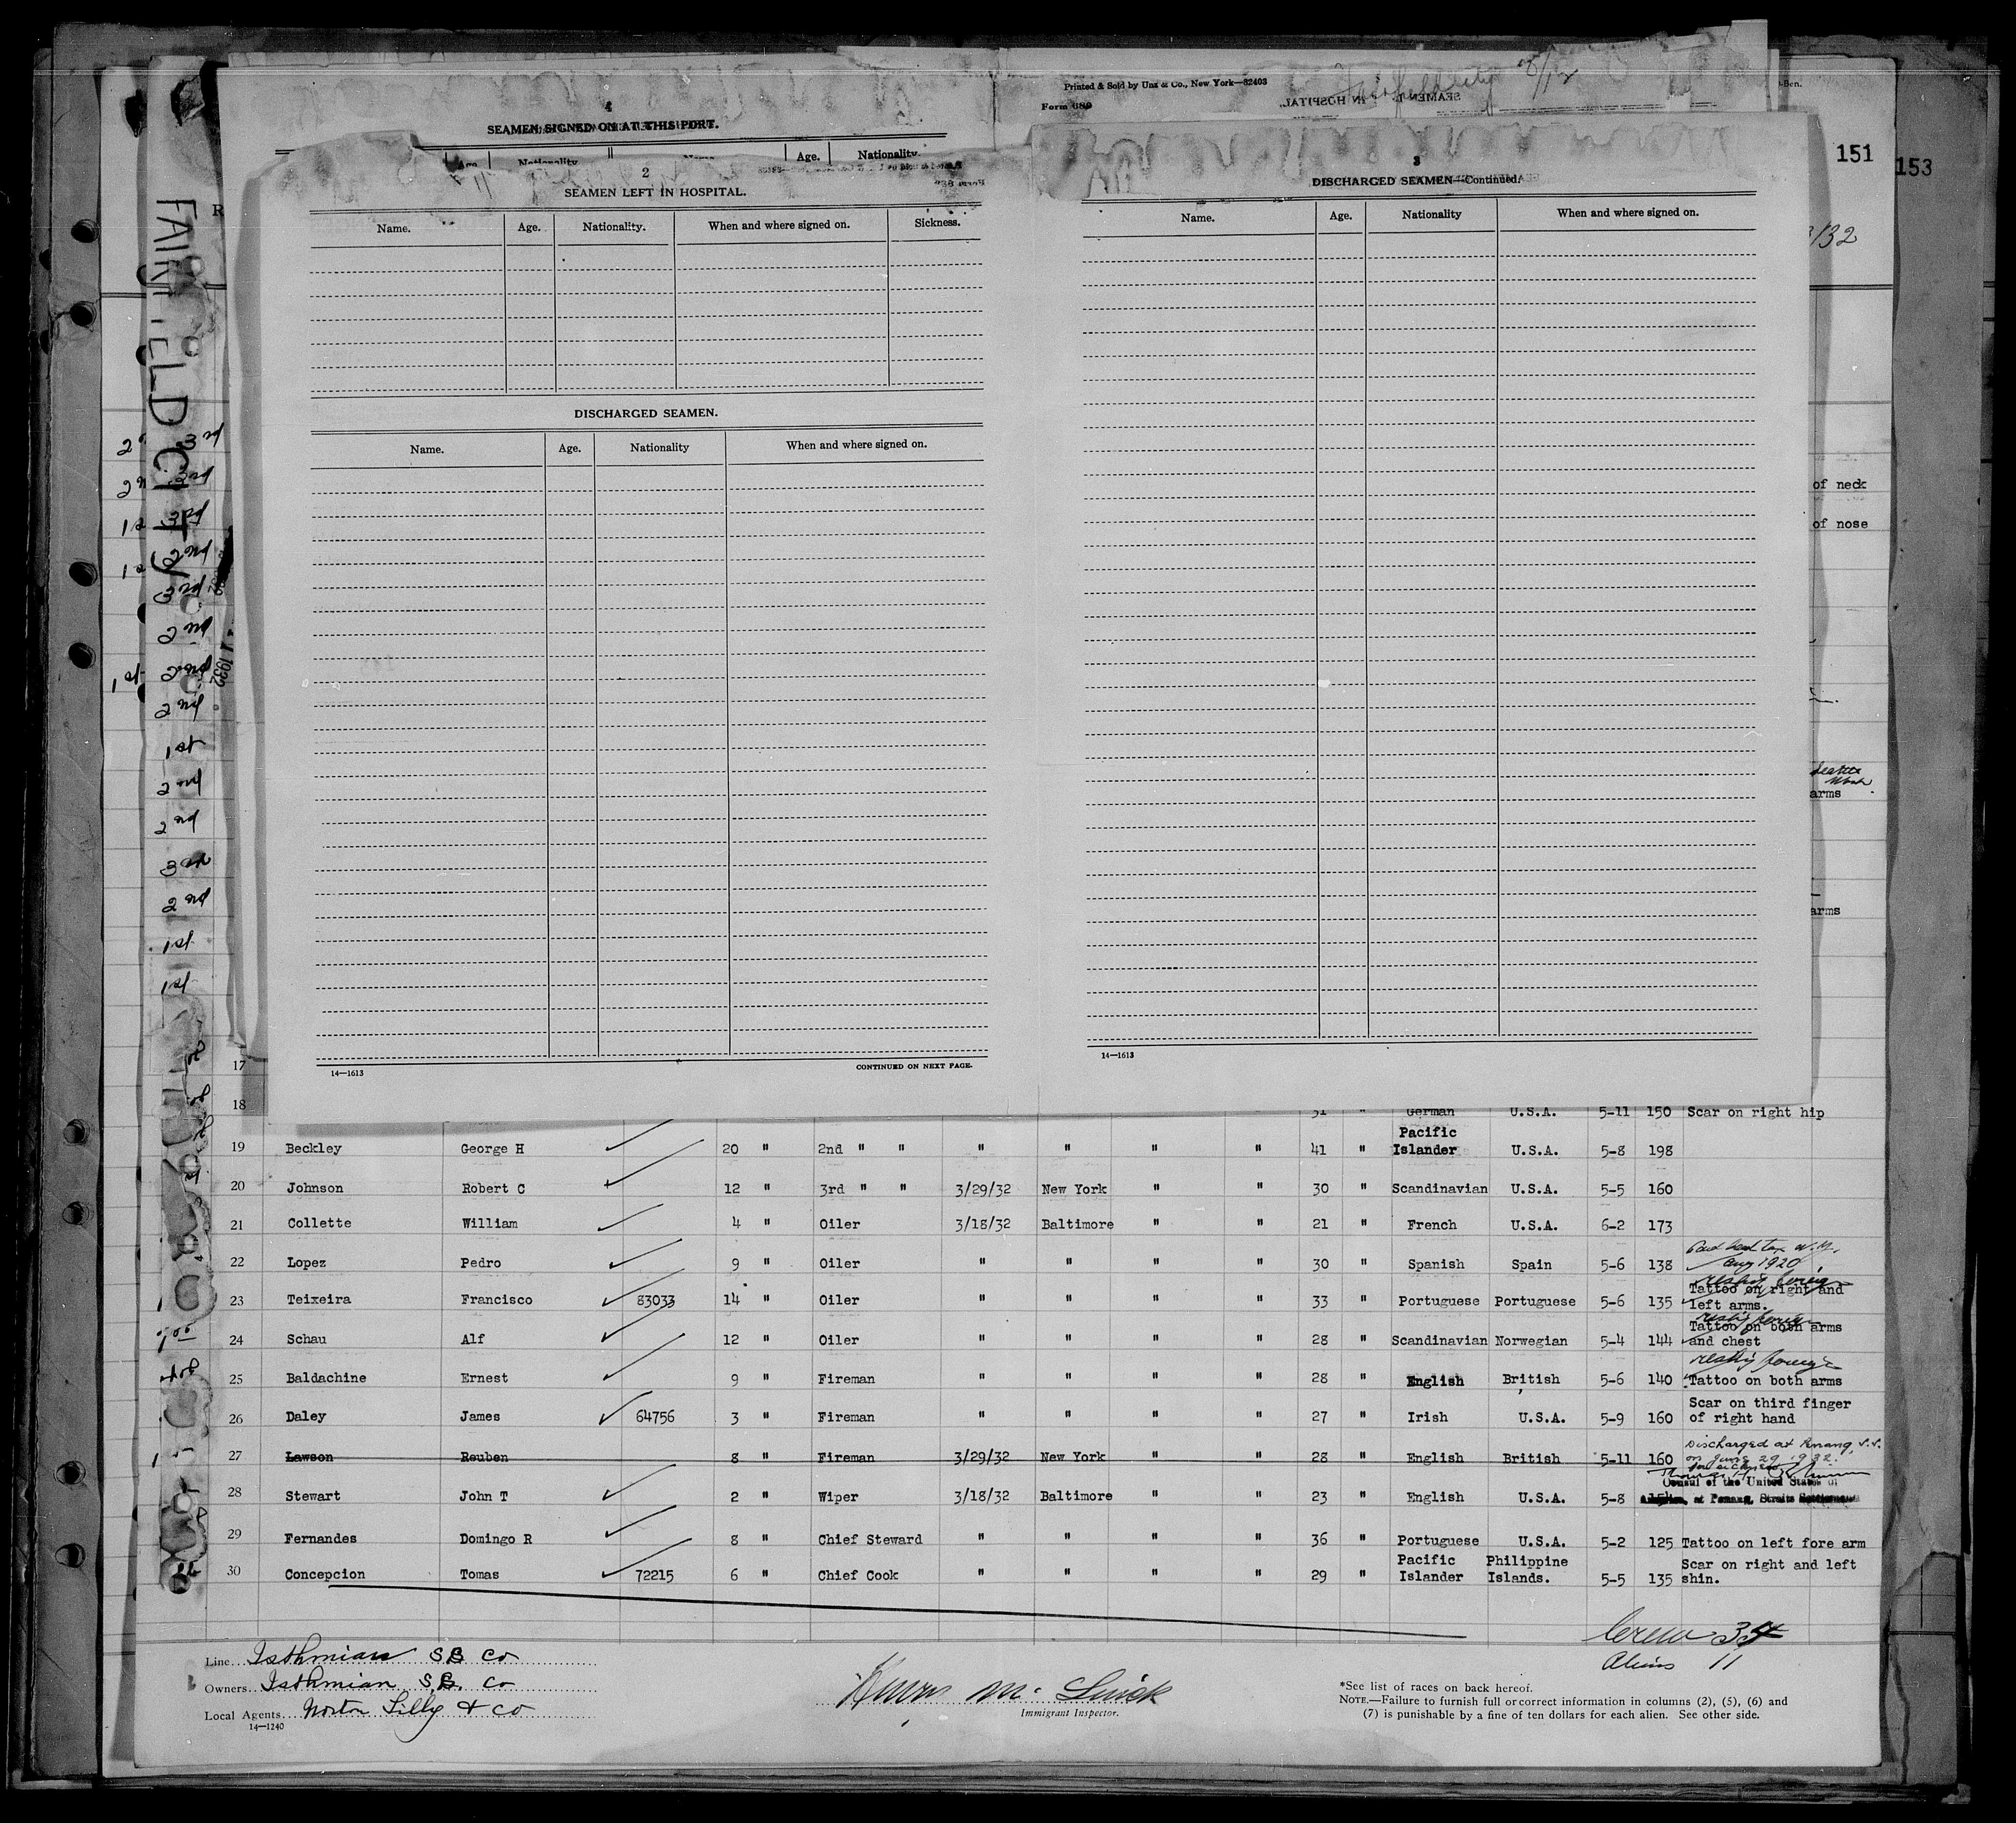 Printed & Sold by Unz & Co., New York—32403
Form 689
SEAMEN SIGNED ON AT THIS PORT.
Age. Nationality Name. Age. Nationality.
151
153
FAIRFIELD CITY
2
SEAMEN LEFT IN HOSPITAL.
Name. Age. Nationality. When and where signed on. Sickness.
DISCHARGED SEAMEN.
Name. Age. Nationality When and where signed on.
14—1613 CONTINUED ON NEXT PAGE.
3
DISCHARGED SEAMEN—Continued.
Name. Age. Nationality When and where signed on.
14—1613
of neck
of nose
arms
arms
3rd
3rd
3rd
2nd
3rd
2nd
2nd
2nd
1st
2nd
2nd
2nd
1st
1st
1932
17
18 31 " German U.S.A. 5-11 150 Scar on right hip
19 Beckley George H 20 " 2nd " " " " " " 41 " Pacific Islander U.S.A. 5-8 198
20 Johnson Robert C 12 " 3rd " " 3/29/32 New York " " 30 " Scandinavian U.S.A. 5-5 160
21 Collette William 4 " Oiler 3/18/32 Baltimore " " 21 " French U.S.A. 6-2 173
22 Lopez Pedro 9 " Oiler " " " " 30 " Spanish Spain 5-6 138 Aug 1920
23 Teixeira Francisco 83033 14 " Oiler " " " " 33 " Portuguese Portuguese 5-6 135 Tattoo on right and left arms.
24 Schau Alf 12 " Oiler " " " " 28 " Scandinavian Norwegian 5-4 144 Tattoo on both arms and chest
25 Baldachine Ernest 9 " Fireman " " " " 28 " English British 5-6 140 Tattoo on both arms
26 Daley James 64756 3 " Fireman " " " " 27 " Irish U.S.A. 5-9 160 Scar on third finger of right hand
27 Lawson Reuben 8 " Fireman 3/29/32 New York " " 28 " English British 5-11 160 Discharged at Penang, S.S. on June 29 1932.
Consul of the United States of
America, at Penang, Straits Settlements
28 Stewart John T 2 " Wiper 3/18/32 Baltimore " " 23 " English U.S.A. 5-8
29 Fernandes Domingo R 8 " Chief Steward " " " " 36 " Portuguese U.S.A. 5-2 125 Tattoo on left fore arm
30 Concepcion Tomas 72215 6 " Chief Cook " " " " 29 " Pacific Islander Philippine Islands. 5-5 135 Scar on right and left shin.
Crew 34
Aliens 11
Line Isthmian SS Co
Owners Isthmian SS. Co
Local Agents Norton Lilly & Co
14—1240
Immigrant Inspector.
*See list of races on back hereof.
NOTE.—Failure to furnish full or correct information in columns (2), (5), (6) and
(7) is punishable by a fine of ten dollars for each alien. See other side.